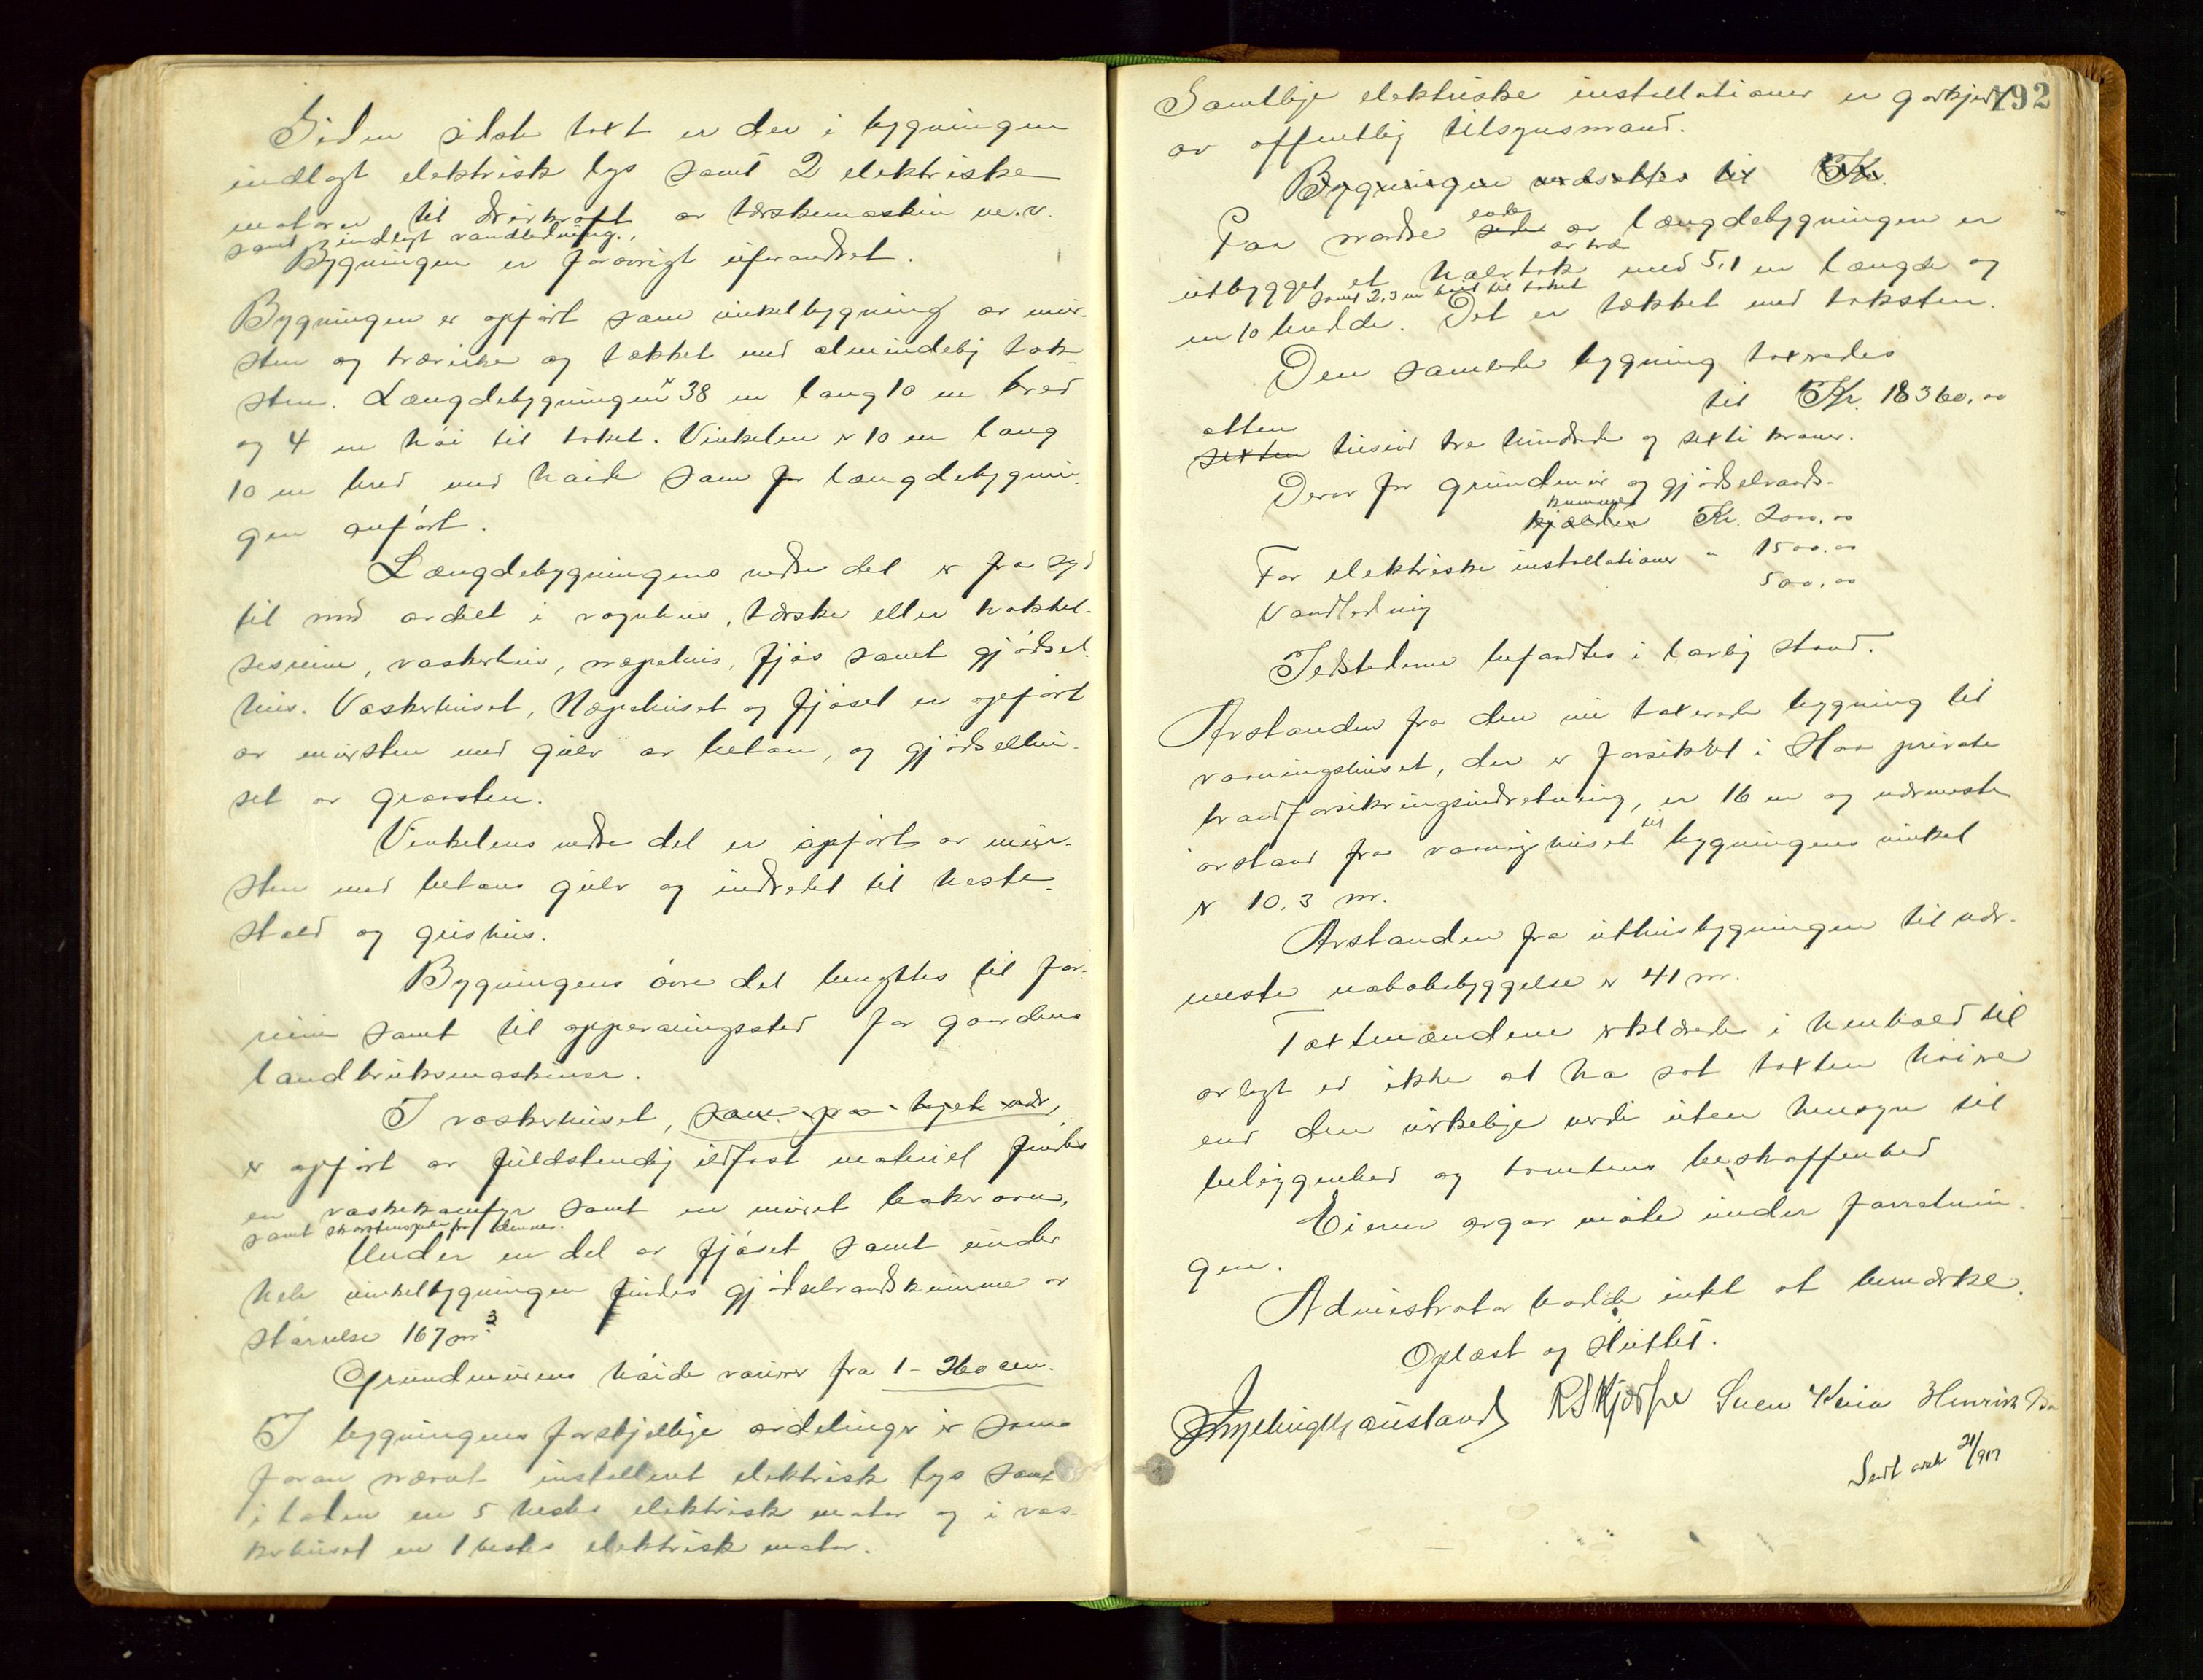 Siden sidste taxt er der i bygningen
indlagt elektrisk lys samt 2 elektriske
motorer til drivkraft av tærskemaskin m.v.
samt indlagt vandledning.
Bygningen er forøvrigt uforandret.
Bygningen er opført som vinkelbygning av mur-
sten og trævirke og tækket med almindelig tak-
sten. Længdebygningen er 38 m lang 10 m bred
og 4 m høi til taket. Vinkelen er 10 m lang
10 m bred med høide som for længdebygnin-
gen anført.
Længdebygningens nedre del er fra syd
til nord avdelt i vognhus, tærske eller hakkel-
sesrum, vaskerhus, næpehus, fjøs samt gjødsel-
hus. Vaskerhuset, Næpehuset og fjøset er opført
av mursten med gulv av beton, og gjødselhu-
set av graasten.
Vinkelens nedre del er opført av mur-
sten med betons gulv og indredet til heste-
stald og grishus.
Bygningens øvre del benyttes til for-
rum samt til opparingssted for gaardens
landbruksmaskiner.
I vaskerhuset, som
er opført av fuldstendig ildfast materiel findes
en vaskekomfyr samt en muret bakerovn,
samt skorstenspibe fra denne.
Under en del av fjøset samt under
hele vinkelbygningen findes gjødselvandskumme av
størrelse 167 m³.
Grundmurens høide varierer fra 1 - 260 cm.
I bygningens forskjellige avdelinger er som
foran nævnt installeret elektrisk lys samt
i laden en 5 hestes elektrisk motor og i vas-
kerhuset en 1 hestes elektrisk motor.
192
Samtlige elektriske installationer er godkjent
av offentlig tilsynsmand.
Bygningen værdsættes til Kr.
Paa nordre ende av længdebygningen er
utbygget et halvtak av træ med 5,1 m længde og
samt 2,3 m høit til taket
m 10 bredde. Det er tækket med taksten.
Den samlede bygning taxeredes
til Kr. 18360,00
atten
sexten tusind tre hundrede og sexti kroner.
Derav for grundmur og gjødselvands-
kumme
kjælder Kr. 2000,00
For elektriske installationer " 1500,00
Vandledning 500,00
Ildstederne befandtes i lovlig stand.
Avstanden fra den nu taxerede bygning til
vaaningshuset, der er forsikret i Haa private
brandforsikringsindretning, er 16 m og nærmeste
avstand fra vaaningshuset til bygningens vinkel
er 10,3 m.
Avstanden fra uthusbygningen til nær-
meste nabobebyggelse er 41 m.
Taxtmændene erklærede i henhold til
avlagt ed ikke at ha sat taxten høiere
end den virkelige værdi uten hensyn til
beliggenhed og tomtens beskaffenhed
Eieren avgav møte under forretnin-
gen.
Administrator hadde intet at bemærke.
Oplæst og sluttet.
R S Kjosse Svend Kvia Henrik
Sendt avsk 21/917